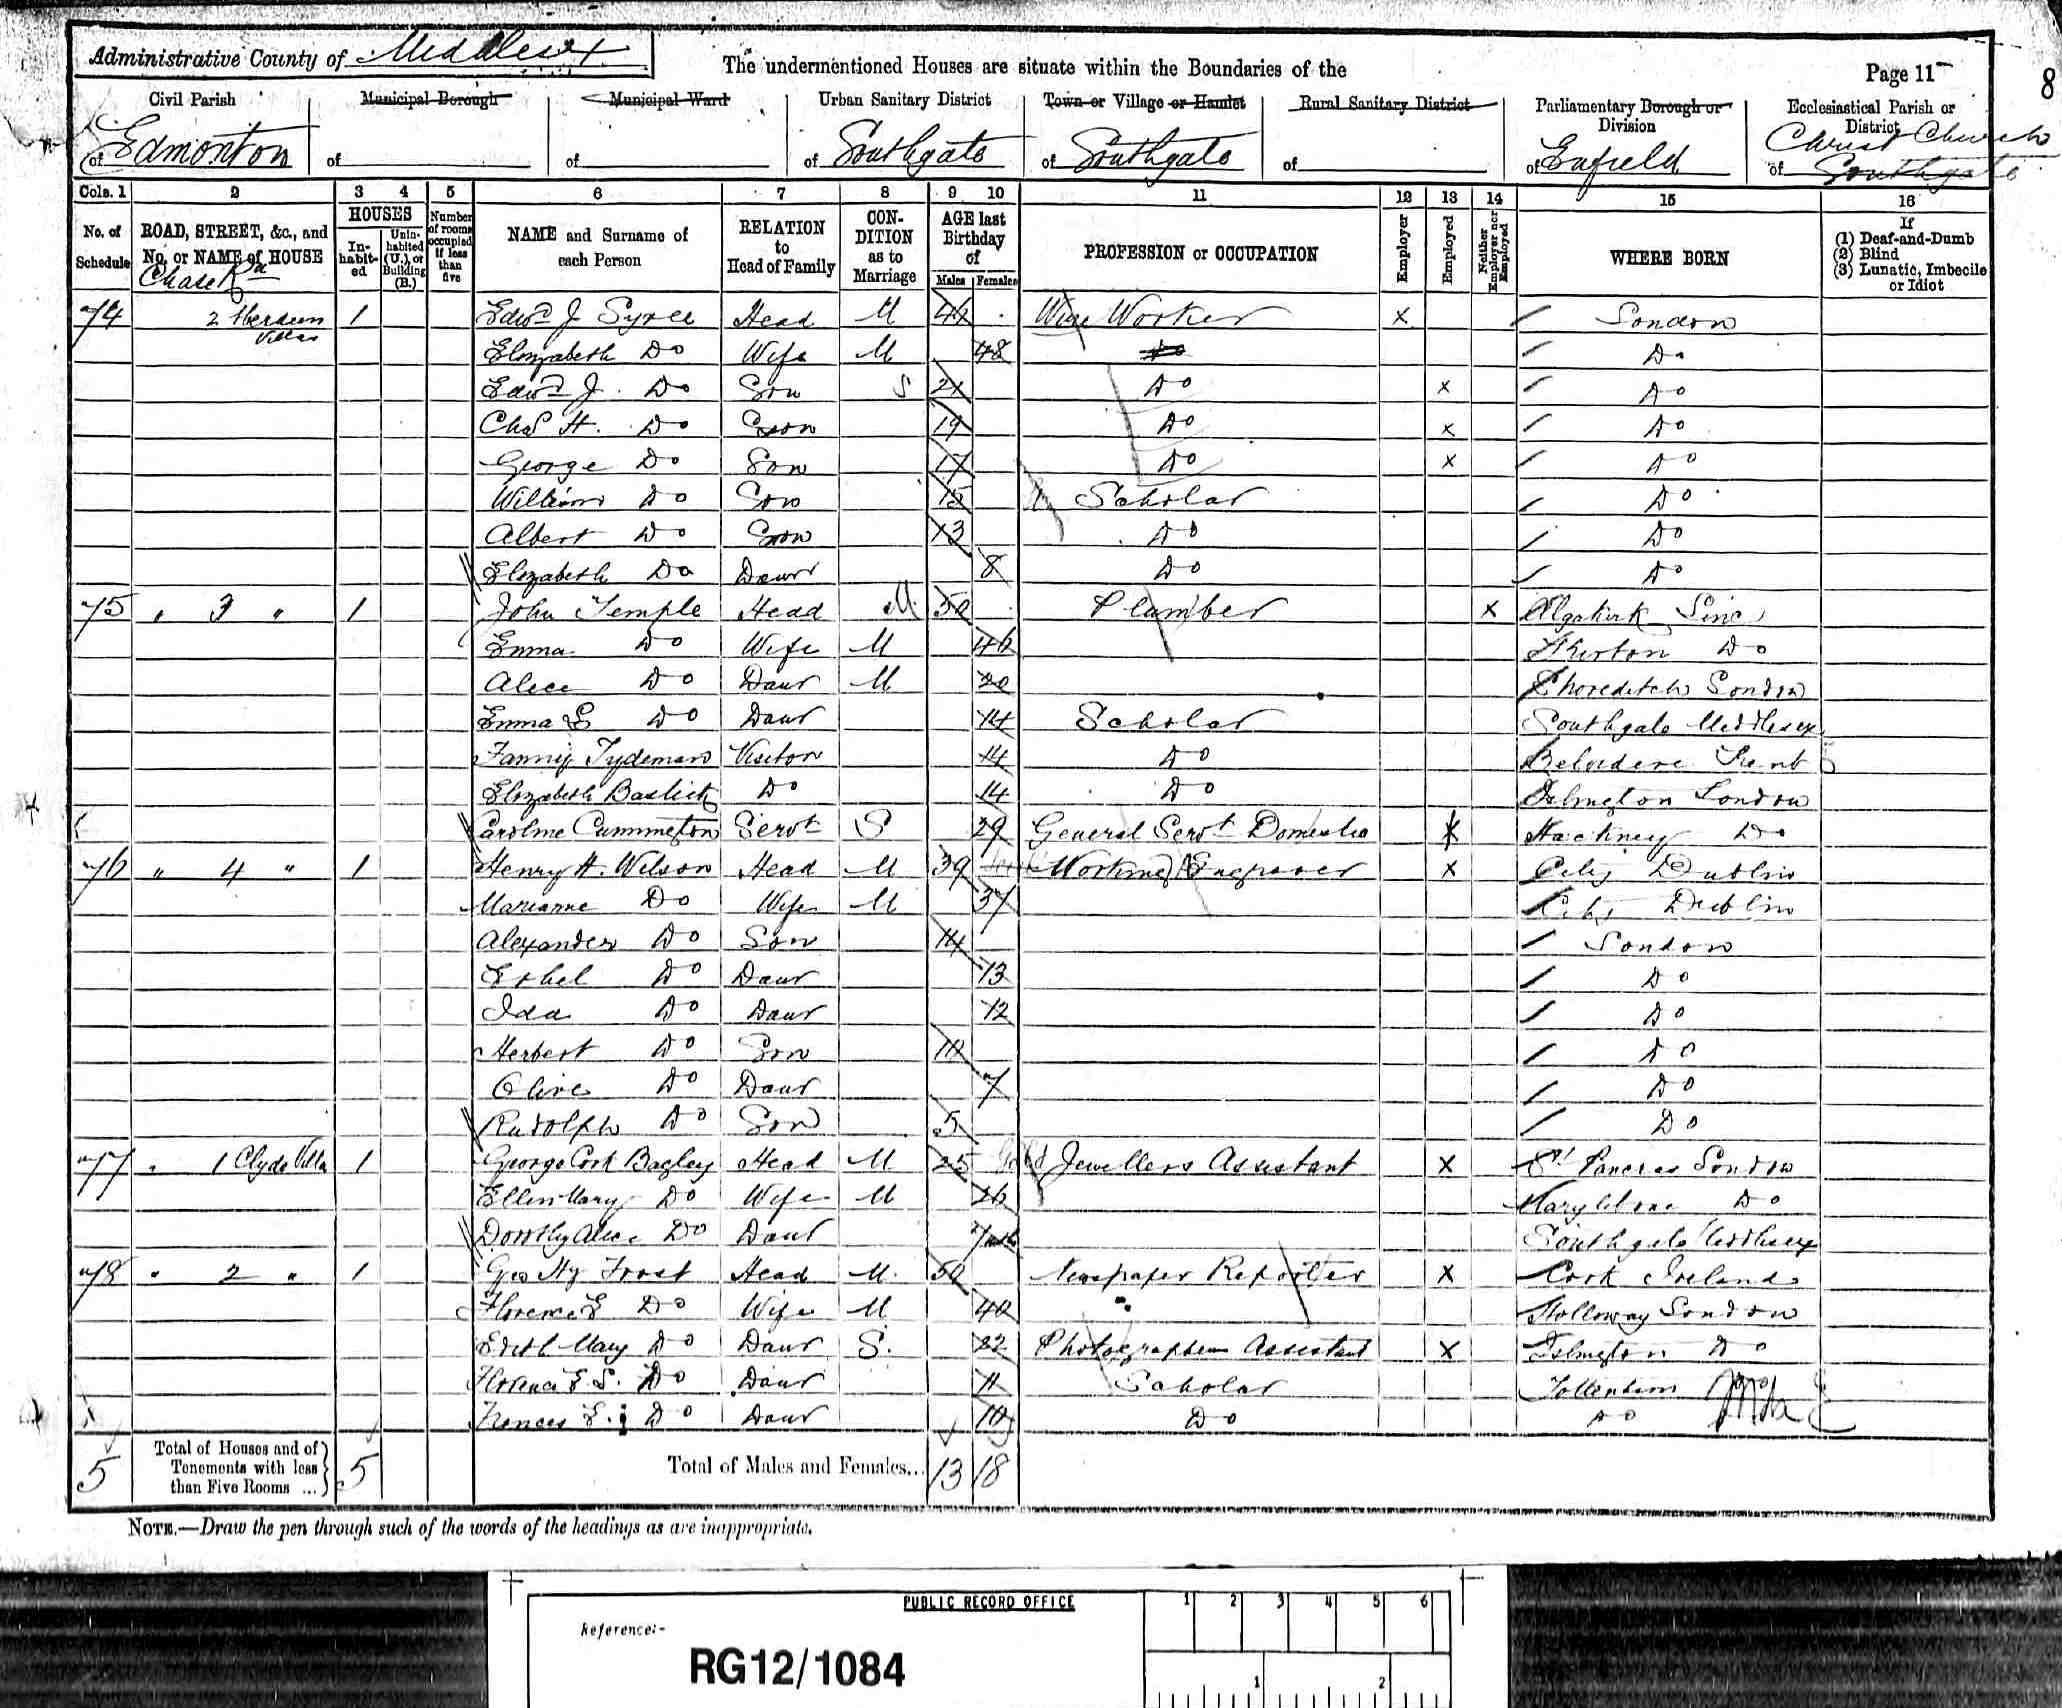 Administrative County of Middlesex
The undermentioned Houses are situate within the Boundaries of the
Page 11
8
Civil Parish of Edmonton
Municipal Borough of
Municipal Ward of
Urban Sanitary District of Southgate
Town or Village or Hamlet of Southgate
Rural Sanitary District of
Parliamentary Borough or Division of Enfield
Ecclesiastical Parish or District of Christ Church Southgate
Cols. 1 2 3 4 5 6 7 8 9 10 11 12 13 14 15 16
No. of Schedule
ROAD, STREET, &c., and No. or NAME of HOUSE
HOUSES
In-habit-ed
Unin-habited (U.), or Building (B.)
Number of rooms occupied if less than five
NAME and Surname of each Person
RELATION to Head of Family
CON-DITION as to Marriage
AGE last Birthday of
Males Females
PROFESSION or OCCUPATION
Employer
Employed
Neither Employer nor Employed
WHERE BORN
If
(1) Deaf-and-Dumb
(2) Blind
(3) Lunatic, Imbecile or Idiot
Chase Rd
74 2 Villas 1 Edwd J Syree Head M 44 Wire Worker x London
Elizabeth Do Wife M 48 Do Do
Edwd J. Do Son S 21 Do x Do
Chas H. Do Son 19 Do x Do
George Do Son 17 Do x Do
William Do Son 15 Scholar Do
Albert Do Son 13 Do Do
Elizabeth Do Daur 8 Do Do
75 " 3 " 1 John Temple Head M 50 Plumber x Algakirk Linc
Emma Do Wife M 46 Do
Alice Do Daur M 20 Shoreditch London
Emma Do Daur 14 Scholar Southgate Middlesex
Fanny Tydeman Visitor 14 Do Belvedere Kent
Elizabeth Do 14 Do Islington London
Caroline Servt S 29 General Servt Domestic x Hackney Do
76 " 4 " 1 Henry H. Wilson Head M 39 Working Engraver x City Dublin
Marianne Do Wife M 37 City Dublin
Alexander Do Son 14 London
Ethel Do Daur 13 Do
Ida Do Daur 12 Do
Herbert Do Son 10 Do
Olive Do Daur 7 Do
Rudolph Do Son 5 Do
77 " 1 Clyde Villa 1 George Cork Bagley Head M 25 Jewellers Assistant x St Pancras London
Ellen Mary Do Wife M 26 Marylebone Do
Dorothy Alice Do Daur 7 mths Southgate Middlesex
78 " 2 " 1 Geo Hy Frost Head M. 50 Newspaper Reporter x Cork Ireland
Florence E Do Wife M 40 Holloway London
Edith Mary Do Daur S. 22 Photographers Assistant x Islington Do
Florence E S. Do Daur 11 Scholar Tottenham
Frances E. Do Daur 10 Do Do
5 Total of Houses and of Tenements with less than Five Rooms ... 5 Total of Males and Females... 13 18
NOTE.—Draw the pen through such of the words of the headings as are inappropriate.
PUBLIC RECORD OFFICE
1 2 3 4 5 6
Reference:-
RG12/1084
1 2